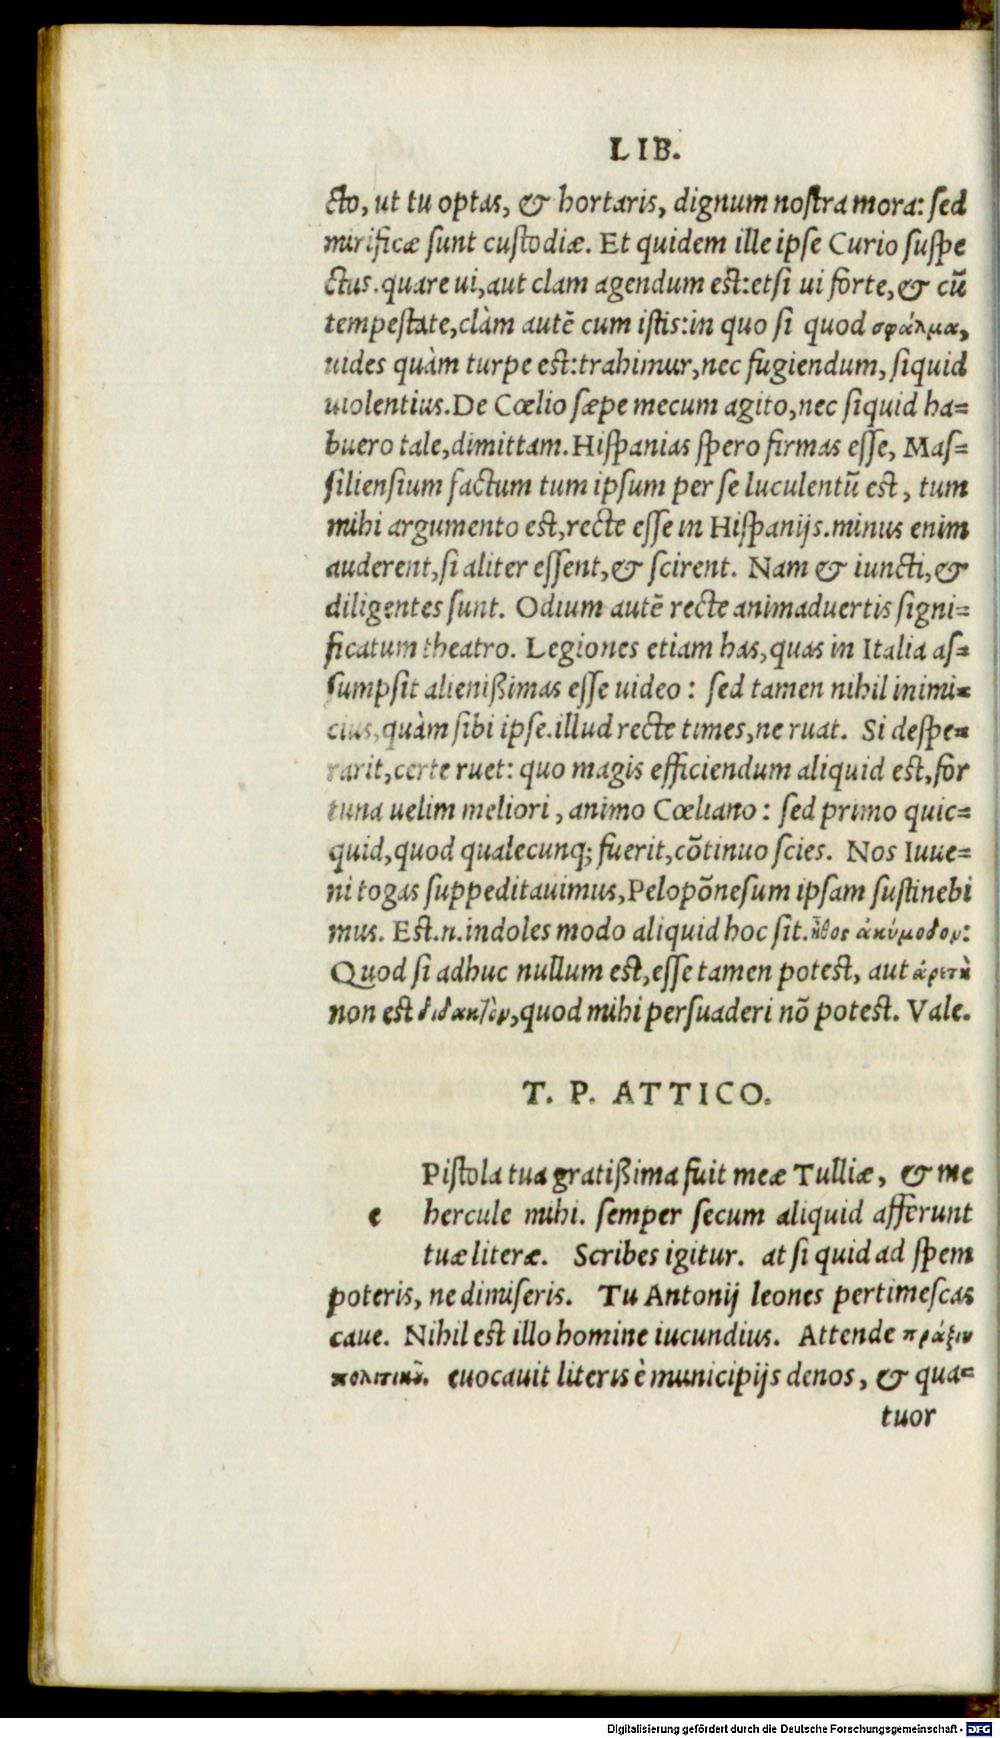 LIB.
cto, ut tu optas, & hortaris, dignum nostra mora: sed
mirificæ sunt custodiæ. Et quidem ille ipse Curio suspe
ctus. quare ui, aut clam agendum est: etsi ui forte, & cũ
tempestate, clàm autẽ cum istis: in quo si quod σφάλμα,
uides quàm turpe est: trahimur, nec fugiendum, siquid
uiolentius. De Cœlio sæpe mecum agito, nec siquid ha=
buero tale, dimittam. Hispanias spero firmas esse, Mas=
siliensium factum tum ipsum per se luculentũ est, tum
mihi argumento est, recte esse in Hispanijs. minus enim
auderent, si aliter essent, & scirent. Nam & iuncti, &
diligentes sunt. Odium autẽ recte animaduertis signi=
ficatum theatro. Legiones etiam has, quas in Italia as=
sumpsit alienißimas esse uideo: sed tamen nihil inimi=
cius, quàm sibi ipse. illud recte times, ne ruat. Si despe=
rarit, certe ruet: quo magis efficiendum aliquid est, for
tuna uelim meliori, animo Cœliano: sed primo quic=
quid, quod qualecunq; fuerit, cõtinuo scies. Nos Iuue=
ni togas suppeditauimus, Pelopõnesum ipsam sustinebi
mus. Est.n. indoles modo aliquid hoc sit. ἦθος ἀκύμοδον:
Quod si adhuc nullum est, esse tamen potest, aut ἀρετὴ
non est διδακτὸν, quod mihi persuaderi nõ potest. Vale.
T. P. ATTICO.
Pistola tua gratißima fuit meæ Tulliæ, & me
e hercule mihi. semper secum aliquid afferunt
tuæ literæ. Scribes igitur. at si quid ad spem
poteris, ne dimiseris. Tu Antonij leones pertimescas
caue. Nihil est illo homine iucundius. Attende πράξιν
πολιτικῦ. euocauit literis è municipijs denos, & qua=
tuor
Digitalisierung gefördert durch die Deutsche Forschungsgemeinschaft - DFG